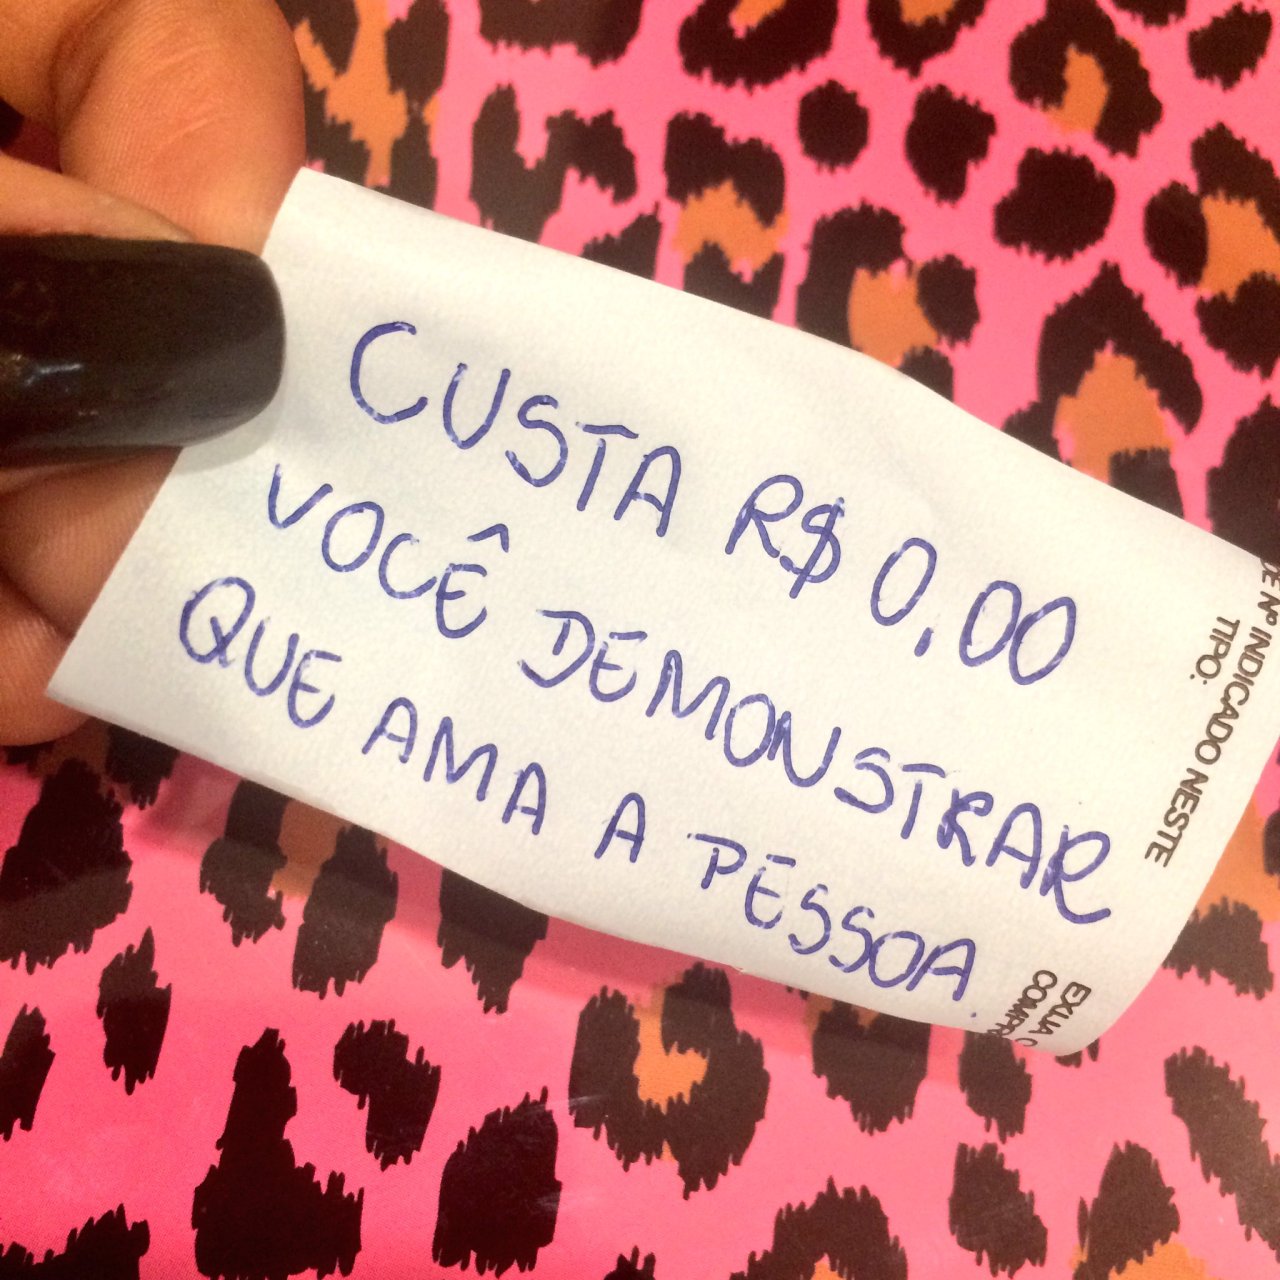 CUSTA R$ 0,00
VOCÊ DEMONSTRAR
QUE AMA A PESSOA.
DE Nº INDICADO NESTE
TIPO:
EXIJA